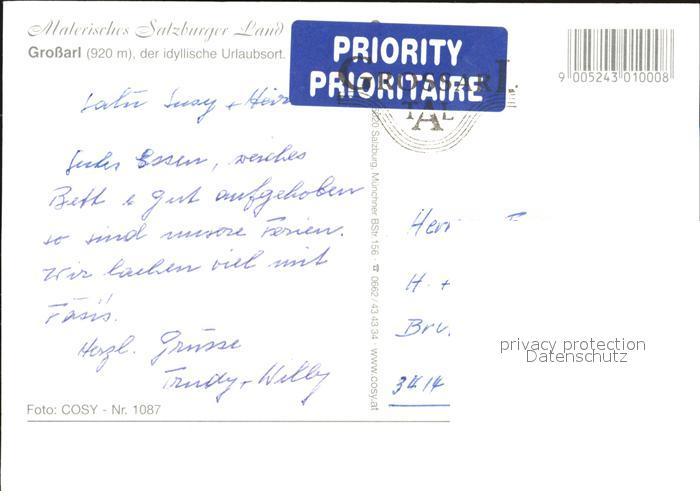 Malerisches Salzburger Land
Großarl (920 m), der idyllische Urlaubsort.
PRIORITY
PRIORITAIRE
GROSSARL
TAL
9 005243 010008
Susy +
Essen, weiches
Bett & gut aufgehoben
so sind unsere Ferien.
Wir lachen viel mit
Fäsis.
Herzl. Grüsse
Trudy + Willy
5020 Salzburg, Münchner BStr. 156 · ☎ 0662/43 43 34 · www.cosy.at
Herr
H. +
privacy protection
Datenschutz
Foto: COSY - Nr. 1087